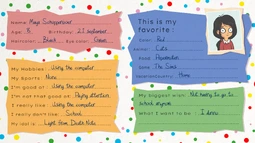 Name: Maya Schoppenboer
Age: 8 Birthday: 21 september
Haircolor: Black Eye color: Green
My hobbies: Using the computer
My Sports: None
I'm good at: Using the computer
I'm not that good at: Paying attention
I really like: Using the computer
I really don't like: School
My idol is: Light from Death Note
This is my
favorite:
Color: Red
Animal: Cats
Food:
Game: The Sims
Home
My biggest wish: Not having to go to
school anymore
What I want to be: I dunno